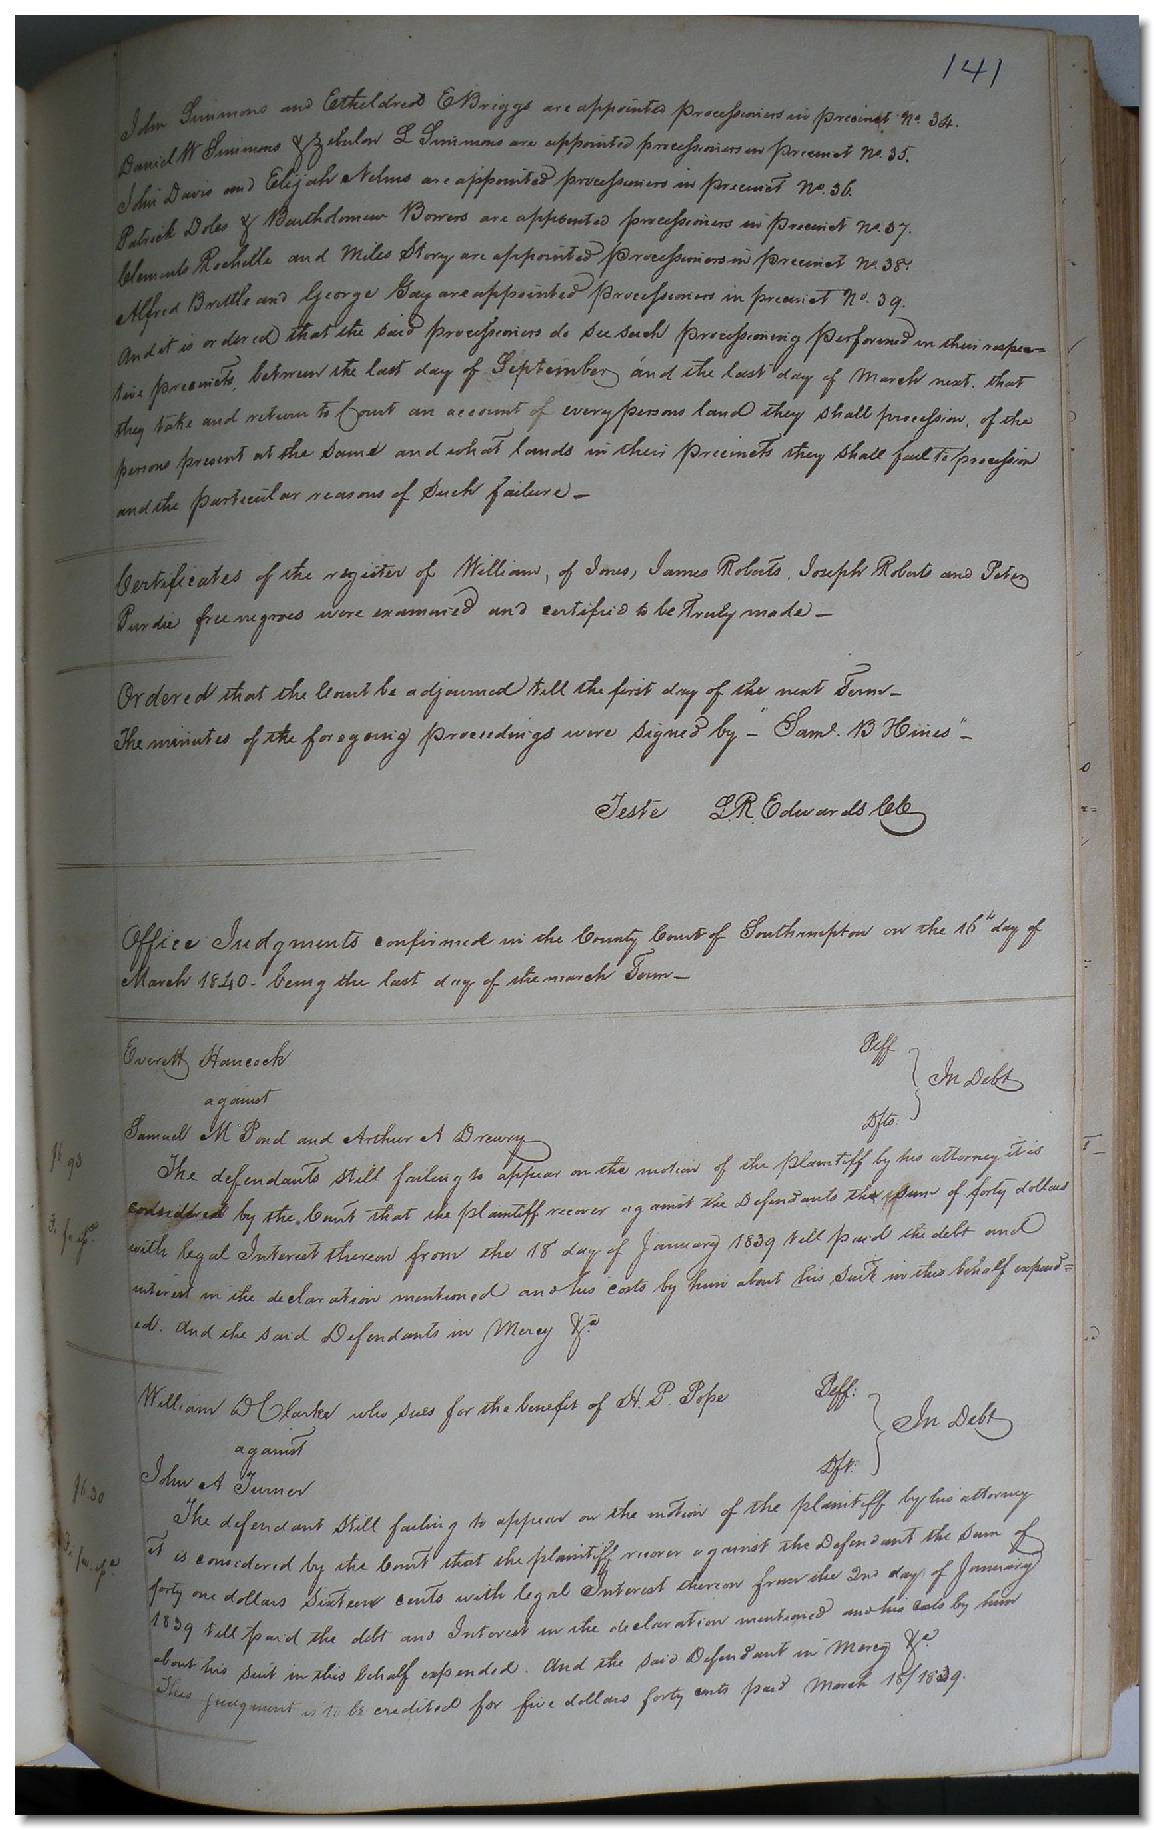 141
John Simmons and Etheldred E Briggs are appointed processioners in precinct No. 34.
Daniel W Simmons & Zebulon L Simmons are appointed processioners in Precinct No. 35.
John Davis and Elijah Nelms are appointed processioners in precinct No. 36.
Patrick Doles & Bartholomew Bowers are appointed processioners in Precinct No. 37.
Clements Rochelle and Miles Story are appointed processioners in precinct No. 38.
Alfred Brittle and George Gay are appointed processioners in precinct No. 39.
And it is ordered that the said processioners do see such processioning performed in their respec=
tive precincts, between the last day of September and the last day of March next. that
they take and return to Court an account of every persons land they shall procession, of the
persons present at the same and what lands in their precincts they shall fail to procession
and the particular reasons of such failure —
Certificates of the register of William, of Jones, James Roberts, Joseph Roberts and Peter
Purdie free negroes were examined and certified to be truly made —
Ordered that the Court be adjourned till the first day of the next Term —
The minutes of the foregoing proceedings were signed by — "Saml. B Hines" —
Teste L. R. Edwards CC
Office Judgments confirmed in the County Court of Southampton on the 16" day of
March 1840 - being the last day of the march Term —
Everett Hancock Plff
against In Debt
Samuel M Pond and Arthur A Drewry Dfts.
The defendants still failing to appear on the motion of the plaintiff by his attorney it is
considered by the Court that the plaintiff recover against the Defendants the sum of forty dollars
with legal Interest thereon from the 18 day of January 1839 till paid the debt and
interest in the declaration mentioned and his costs by him about his suit in this behalf expend=
ed. And the said Defendants in Mercy &c
William D Clarke who sues for the benefit of H. P. Pope Plff:
against In Debt
John A Turner Dft:
The defendant still failing to appear on the motion of the plaintiff by his attorney
it is considered by the Court that the plaintiff recover against the Defendant the sum of
forty one dollars sixteen cents with legal Interest thereon from the 2nd day of January
1839 till paid the debt and Interest in the declaration mentioned and his costs by him
about his suit in this behalf expended. And the said Defendant in Mercy &c
This judgment is to be credited for five dollars forty cents paid March 18/1839.